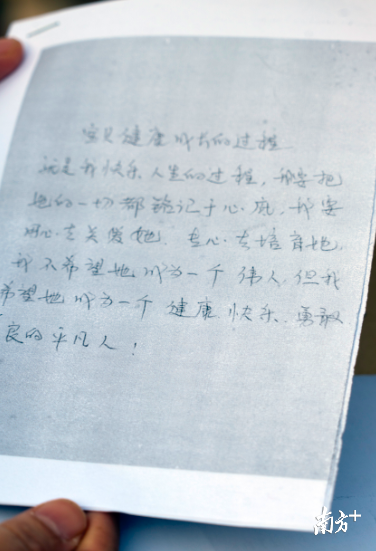 宝贝健康成长的过程
就是我快乐人生的过程，我要把
她的一切都铭记于心底，我要
用心去关爱她，专心去培育她，
我不希望她成为一个伟人，但我
希望她成为一个健康快乐、勇敢
良的平凡人！
南方+